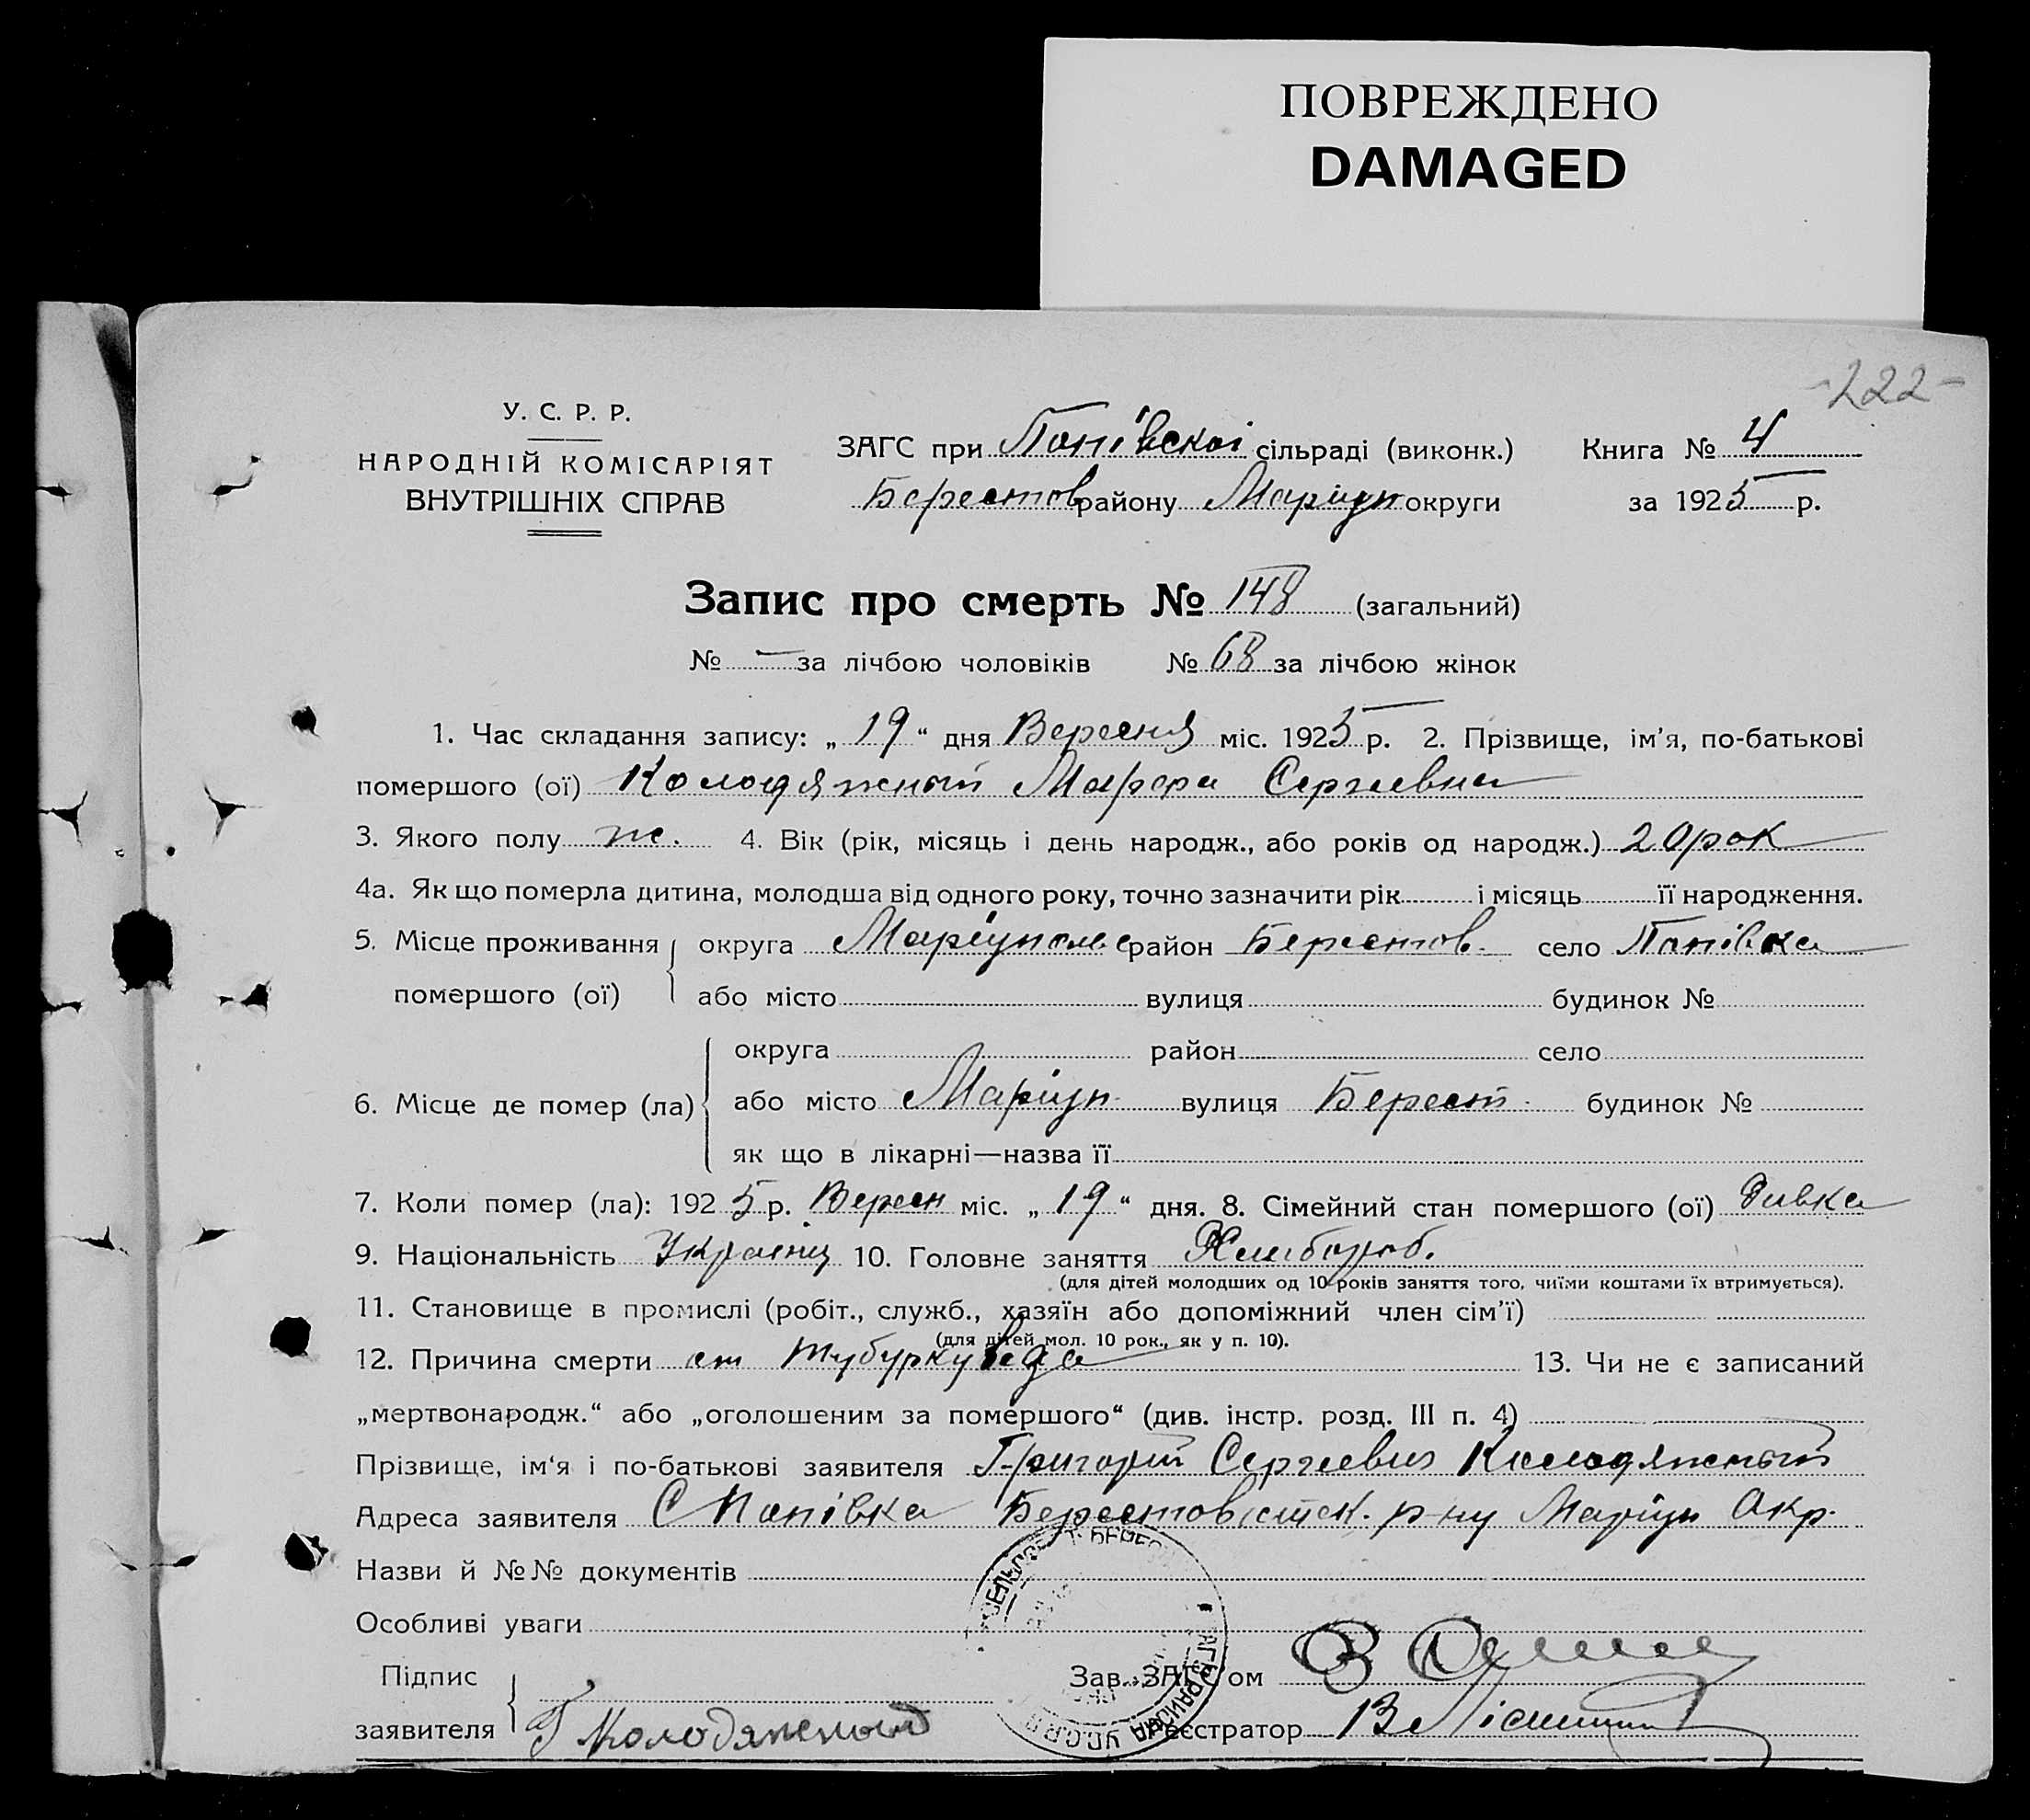 ПОВРЕЖДЕНО
DAMAGED
-222-
У. С. Р. Р.
НАРОДНІЙ КОМІСАРІЯТ
ВНУТРІШНІХ СПРАВ
ЗАГС при Попівскої сільраді (виконк.) Книга № 4
Берестов району Маріуп округи за 1925 р.
Запис про смерть № 148 (загальний)
№ — за лічбою чоловіків № 68 за лічбою жінок
1. Час складання запису: „19“ дня Вересня міс. 1925 р. 2. Прізвище, ім’я, по-батькові
помершого (ої) Колодяжный Марфа Сергиевна
3. Якого полу ж. 4. Вік (рік, місяць і день народж., або років од народж.) 20 рок
4а. Як що померла дитина, молодша від одного року, точно зазначити рік і місяць її народження.
5. Місце проживання округа район Берестов. село Попівка
помершого (ої) або місто вулиця будинок №
округа район село
6. Місце де помер (ла) або місто Маріуп вулиця Берест. будинок №
як що в лікарні—назва її
7. Коли помер (ла): 1925 р. Вересн міс. „19“ дня. 8. Сімейний стан помершого (ої) Дивка
9. Національність Украінц 10. Головне заняття Хлибороб.
(для дітей молодших од 10 років заняття того, чиїми коштами їх втримується).
11. Становище в промислі (робіт., служб., хазяїн або допоміжний член сім’ї)
(для дітей мол. 10 рок., як у п. 10).
12. Причина смерти от тубуркулеза 13. Чи не є записаний
„мертвонародж.“ або „оголошеним за помершого“ (див. інстр. розд. III п. 4)
Прізвище, ім‘я і по-батькові заявителя Григорий Сергиевич Колодяжный
Адреса заявителя С Попівка р-ну Маріуп Окр.
Назви й №№ документів
Особливі уваги
Підпис Зав. ЗАГС’ом
заявителя Г Колодяжный Реєстратор